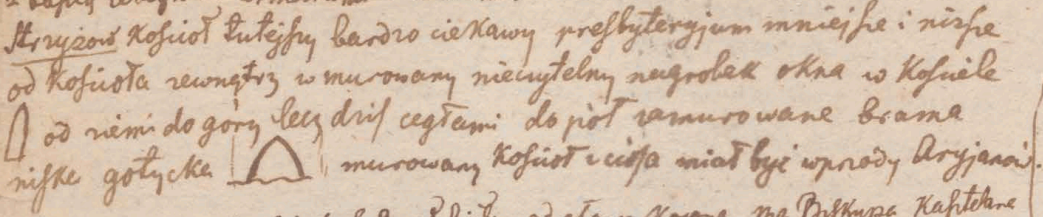 Strzyżów Kościoł tutejszy bardzo ciekawy presbyteryjum mniejsze i niższe
od kościoła zewnątrz wmurowany nieczytelny nagrobek okna w Kościele
od ziemi do góry lecz dziś cegłami do pół zamurowane brama
niska gotycka murowany Kościoł z ciosa miał być wprzódy Aryjanów.
na Biskupa Kasztelana